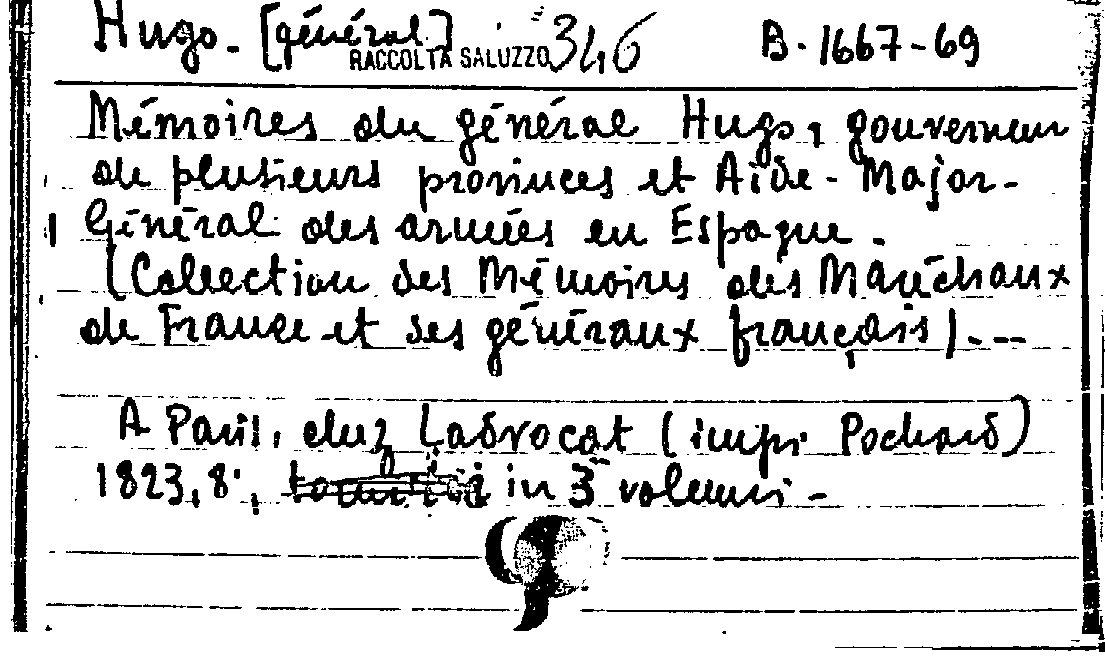 Hugo. [général] 346 B. 1667-69
RACCOLTA SALUZZO
Mémoires du général Hugo, gouverneur
de plusieurs provinces et Aide-Major-
Général des armées en Espagne.
(Collection des Mémoires des Maréchaux
de France et des généraux français). --
A Paris, chez Ladvocat (impr. Pochard)
1823, 8°, in 3 volumi -